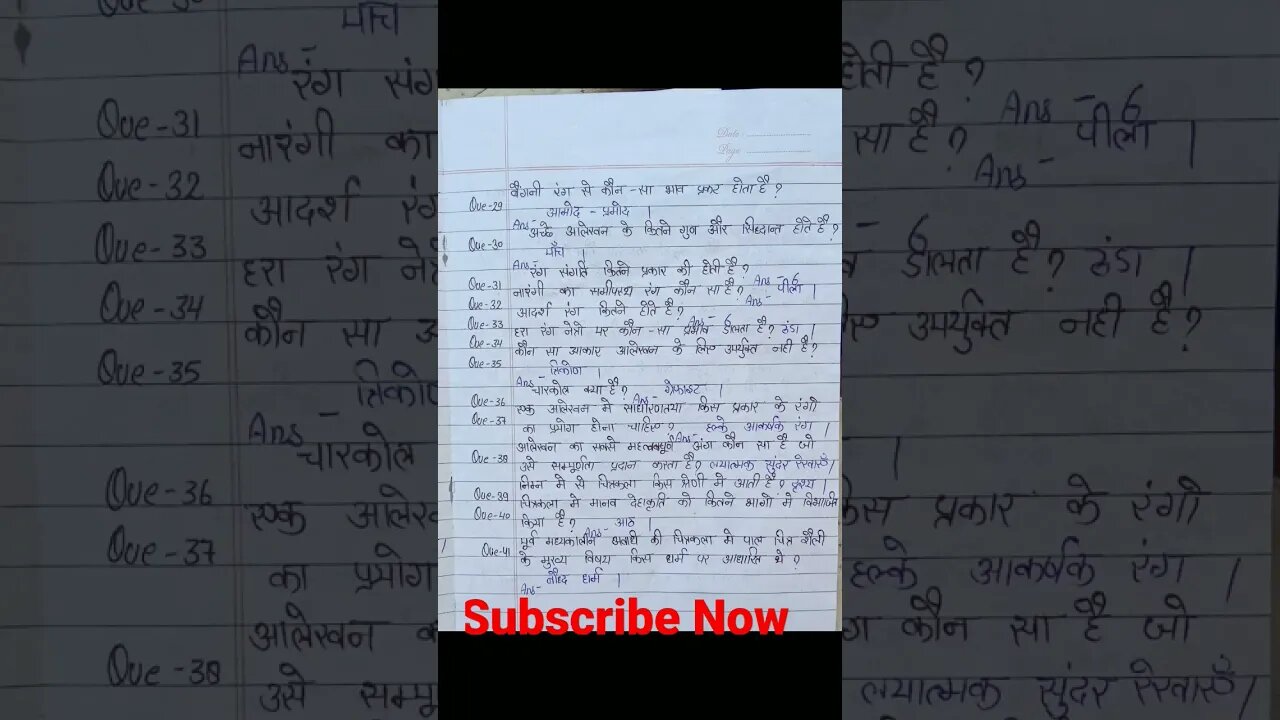 Date :
Page
बैगनी रंग से कौन -सा भाव प्रकर होता है?
Que-29
आमोद - प्रमोद ।
Ans- अच्छे आलेखन के कितने गुव और सिध्दान्त होते है?
Que-30
पाँच ।
Ans- रंग संगति कितने प्रकार की होती है?
Que-31 Ans - 6
नारंगी का समीपस्थ रंग कौन सा है? पीला ।
Que-32 Ans -
आदर्श रंग कितने होते है?
Que-33 Ans - 6
हरा रंग नेत्रो पर कौन -सा प्रभाव डालता है? ठंडा ।
Que-34
कौन सा आकार आलेखन के लिए उपर्युक्त नही है?
Que-35
त्रिकोण ।
Ans- चारकोल क्या है? ग्रेफाइट ।
Que-36 Ans-
एक आलेखन मे साधारणतया किस प्रकार के रंगो
Que-37
का प्रयोग होना चाहिए? हल्के आकर्षक रंग ।
Ans-
आलेखन का सबसे महत्वपूर्ण अंग कौन सा है जो
Que-38
उसे सम्पूर्णता प्रदान करता है? लयात्मक सुंदर रेखाएँ।
निम्न मे से चित्रकला किस श्रेणी मे आती है? दृश्य ।
Que-39
चित्रकला मे मानव देहाकृति को कितने भागो मे विभाजित
Que-40
किया है? आठ ।
Ans-
पूर्व मध्यकालीन अवधी की चित्रकला मे पाल चित्र शैली
Que-41
के मुख्य विषय किस धर्म पर आधारित थे?
बौध्द धर्म ।
Ans-
Subscribe Now